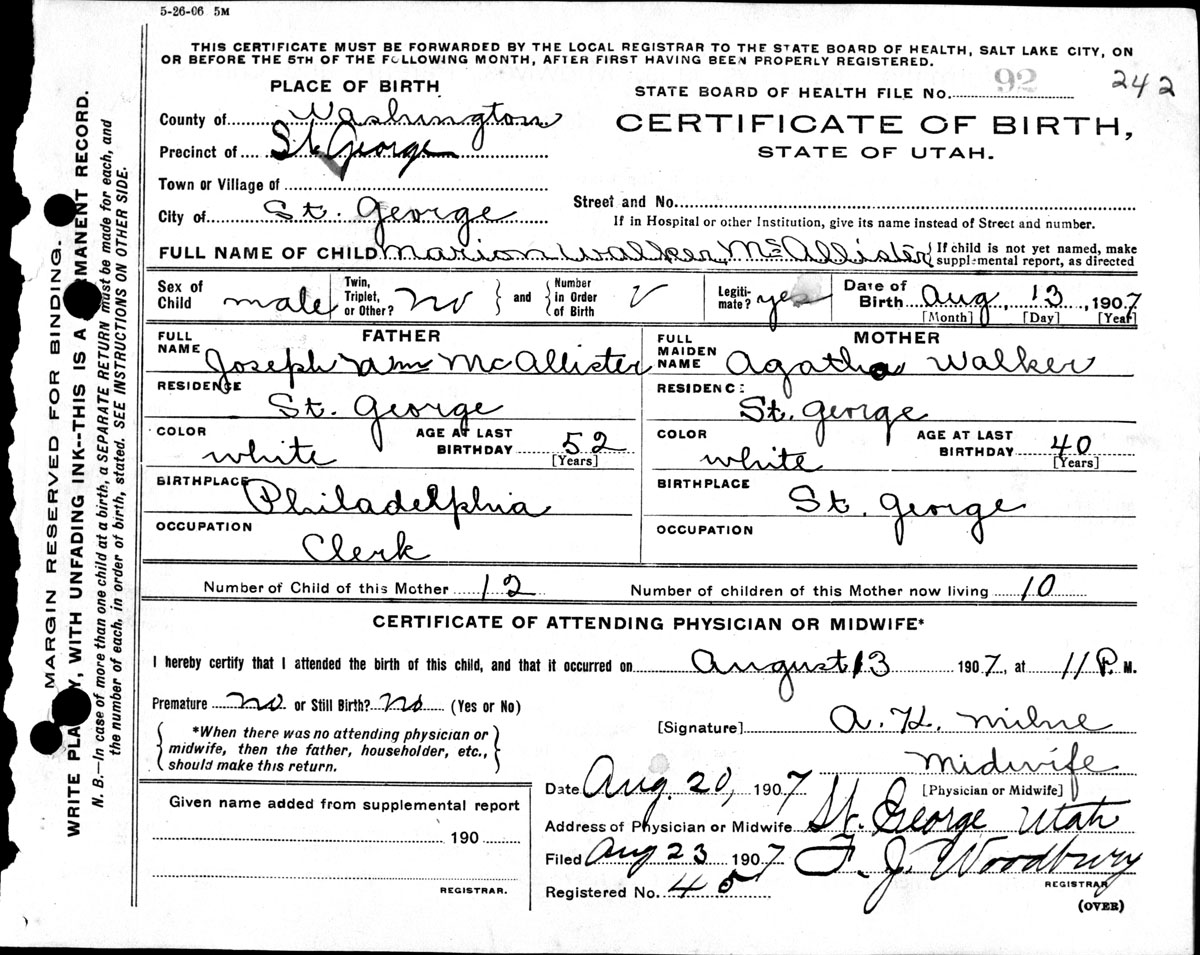 5-26-06 5M
THIS CERTIFICATE MUST BE FORWARDED BY THE LOCAL REGISTRAR TO THE STATE BOARD OF HEALTH, SALT LAKE CITY, ON
OR BEFORE THE 5TH OF THE FOLLOWING MONTH, AFTER FIRST HAVING BEEN PROPERLY REGISTERED.
PLACE OF BIRTH
STATE BOARD OF HEALTH FILE No. 92 242
County of Washington
CERTIFICATE OF BIRTH,
Precinct of St. George
STATE OF UTAH.
Town or Village of
Street and No.
City of St. George
If in Hospital or other Institution, give its name instead of Street and number.
FULL NAME OF CHILD Marion Walker McAllister { If child is not yet named, make
supplemental report, as directed
Sex of Child male Twin, Triplet, or Other? No } and { Number in Order of Birth Legitimate? yes Date of Birth Aug 13, 1907
[Month] [Day] [Year]
FATHER
FULL NAME Joseph Wm McAllister
RESIDENCE
St. George
COLOR white AGE AT LAST BIRTHDAY 52
[Years]
BIRTHPLACE Philadelphia
OCCUPATION
Clerk
MOTHER
FULL MAIDEN NAME Agatha Walker
RESIDENC:
St. George
COLOR white AGE AT LAST BIRTHDAY 40
[Years]
BIRTHPLACE St. George
OCCUPATION
Number of Child of this Mother 12 Number of children of this Mother now living 10
CERTIFICATE OF ATTENDING PHYSICIAN OR MIDWIFE*
I hereby certify that I attended the birth of this child, and that it occurred on August 13 1907, at 11 P. M.
Premature no or Still Birth? No (Yes or No)
*When there was no attending physician or
midwife, then the father, householder, etc.,
should make this return.
[Signature] A. H. Milne
Midwife
[Physician or Midwife]
Date Aug. 20, 1907
Address of Physician or Midwife St. George Utah
Filed Aug 23 1907 F. J. Woodbury
REGISTRAR
Registered No. 45
(OVER)
Given name added from supplemental report
190
REGISTRAR.
MARGIN RESERVED FOR BINDING.
WRITE PLA Y, WITH UNFADING INK--THIS IS A MANENT RECORD.
N. B.—In case of more than one child at a birth, a SEPARATE RETURN must be made for each, and
the number of each, in order of birth, stated. SEE INSTRUCTIONS ON OTHER SIDE.